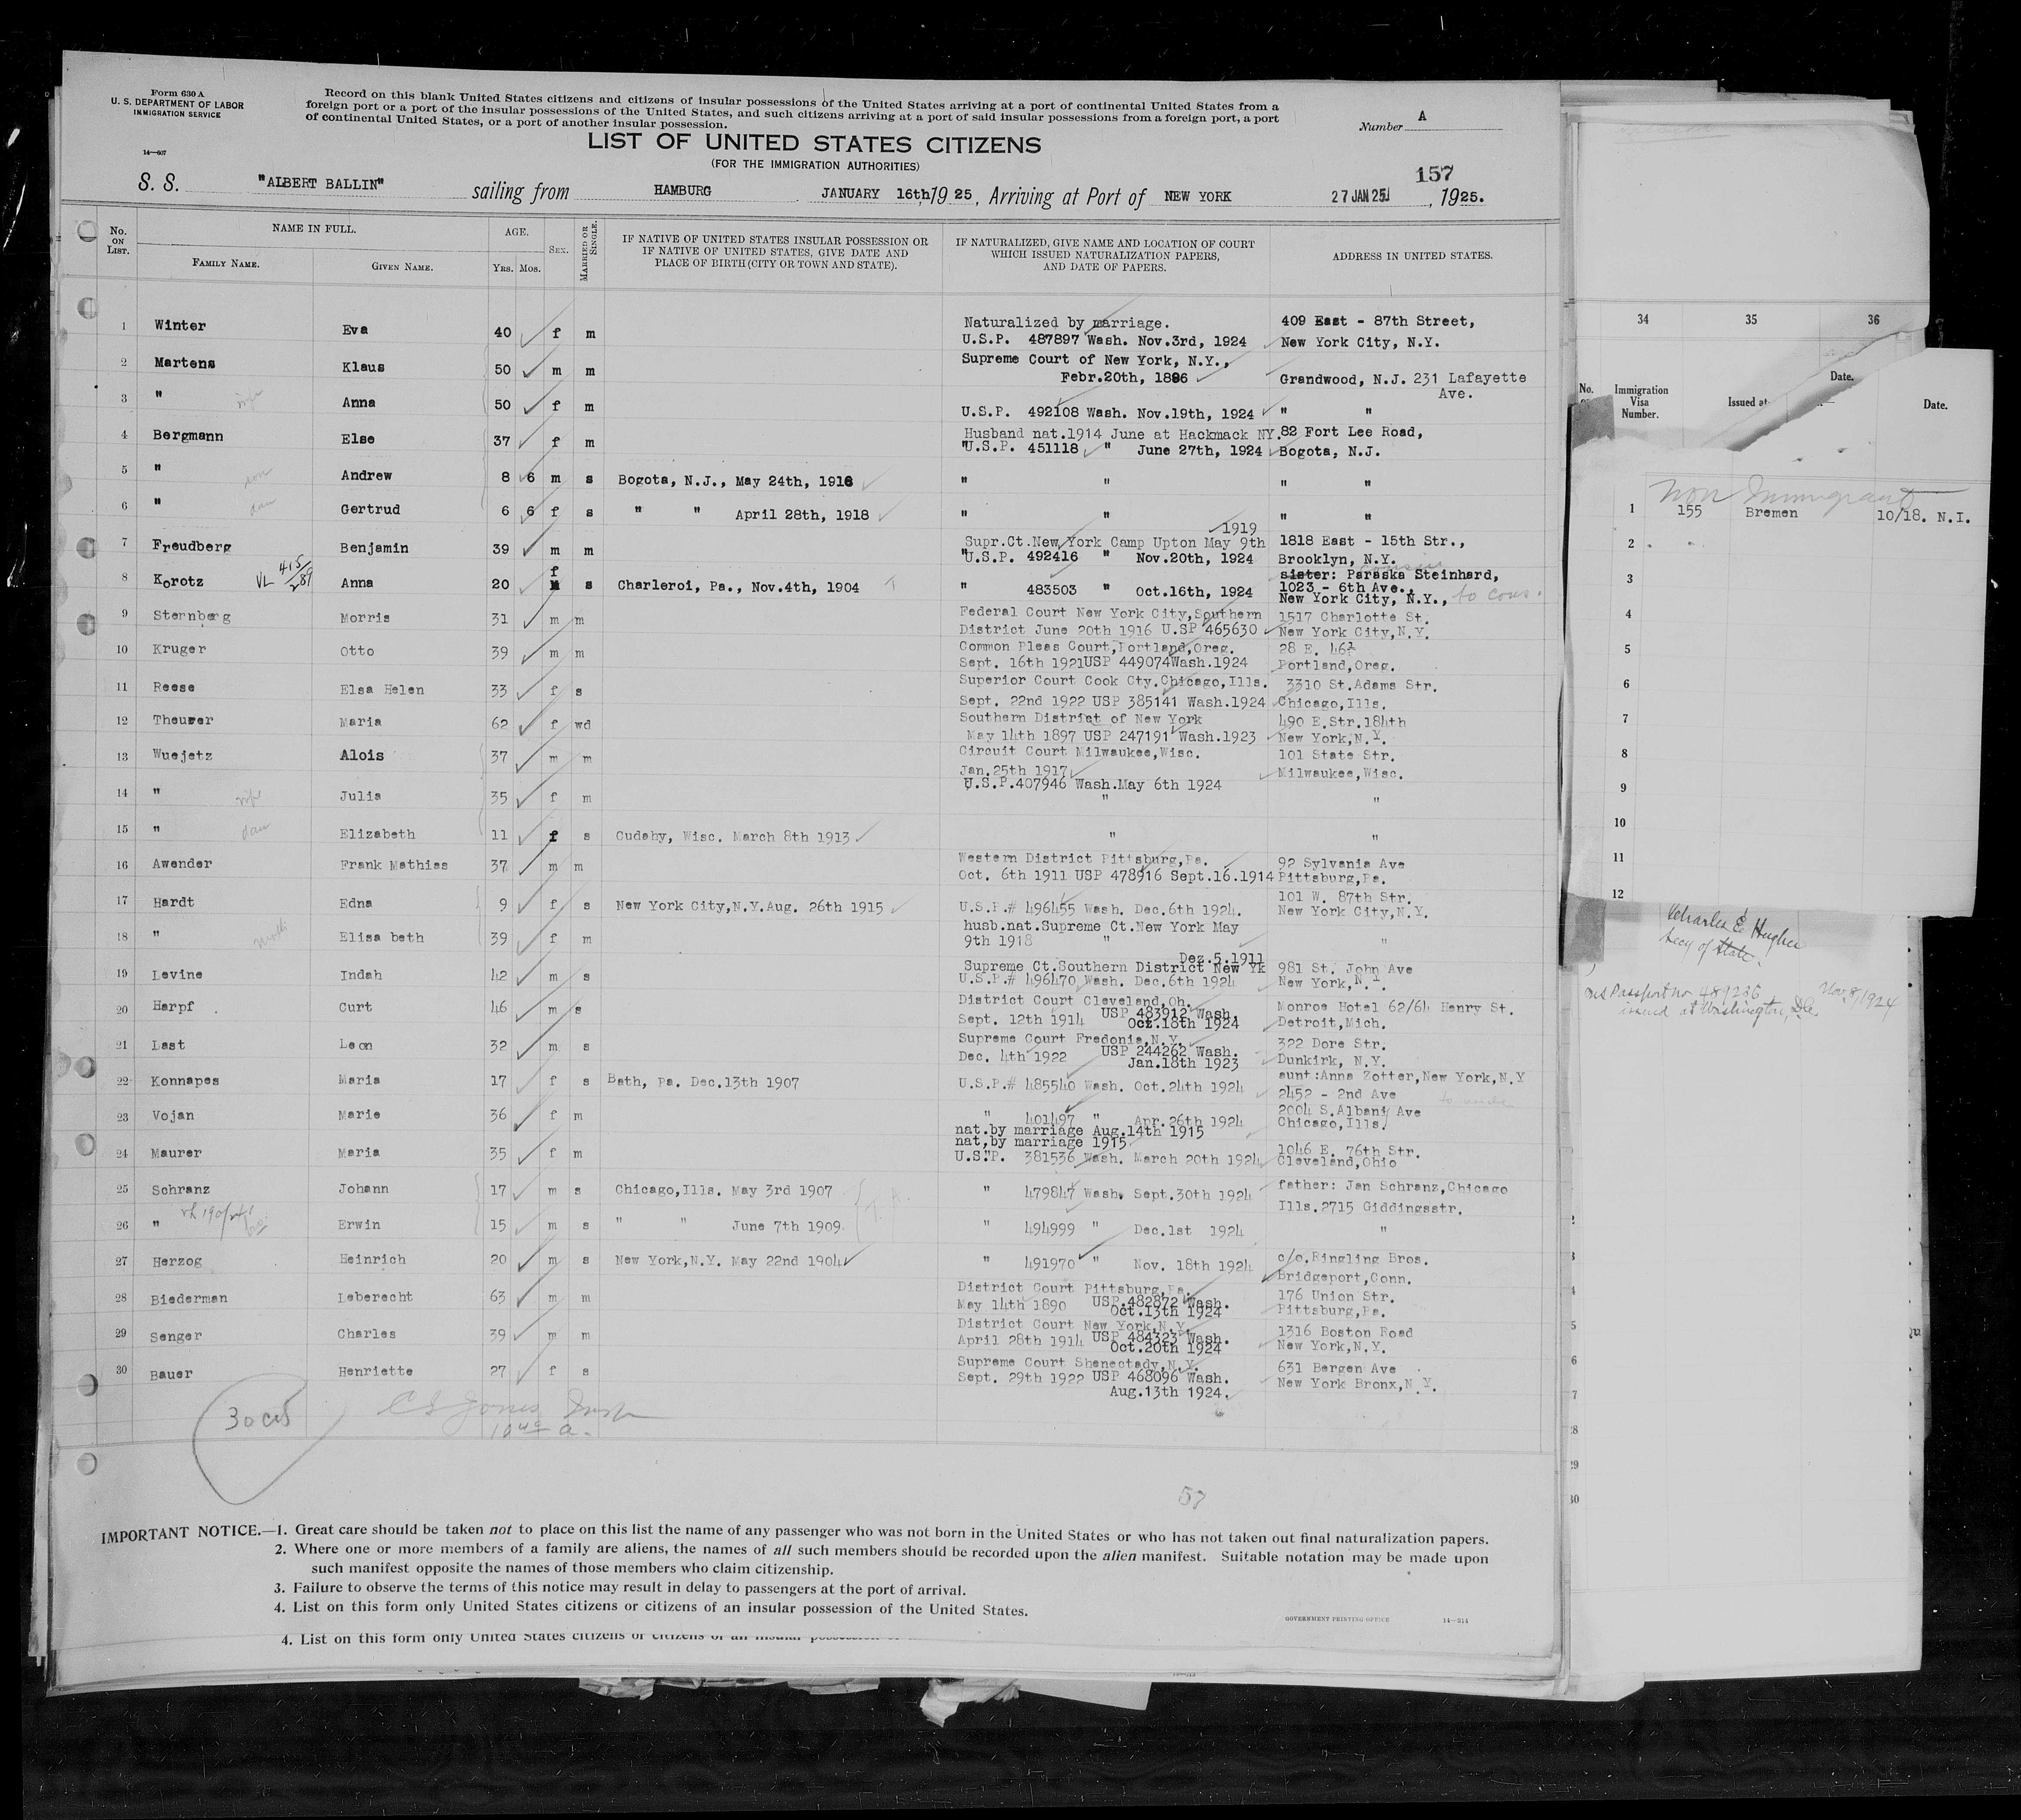 Form 630 A
U. S. DEPARTMENT OF LABOR
IMMIGRATION SERVICE
14—607
Record on this blank United States citizens and citizens of insular possessions of the United States arriving at a port of continental United States from a
foreign port or a port of the insular possessions of the United States, and such citizens arriving at a port of said insular possessions from a foreign port, a port
of continental United States, or a port of another insular possession.
LIST OF UNITED STATES CITIZENS
(FOR THE IMMIGRATION AUTHORITIES)
Number A
157
S. S. "ALBERT BALLIN" sailing from HAMBURG JANUARY 16th 1925, Arriving at Port of NEW YORK 27 JAN 25, 1925.
No. ON LIST. NAME IN FULL. FAMILY NAME. GIVEN NAME. AGE. Yrs. Mos. SEX. MARRIED OR SINGLE.
IF NATIVE OF UNITED STATES INSULAR POSSESSION OR
IF NATIVE OF UNITED STATES, GIVE DATE AND
PLACE OF BIRTH (CITY OR TOWN AND STATE).
IF NATURALIZED, GIVE NAME AND LOCATION OF COURT
WHICH ISSUED NATURALIZATION PAPERS,
AND DATE OF PAPERS.
ADDRESS IN UNITED STATES.
1 Winter Eva 40 f m Naturalized by marriage. 409 East - 87th Street,
U.S.P. 487897 Wash. Nov.3rd, 1924 New York City, N.Y.
2 Martens Klaus 50 m m Supreme Court of New York, N.Y.,
Febr.20th, 1896 Grandwood, N.J. 231 Lafayette
Ave.
3 " wife Anna 50 f m U.S.P. 492108 Wash. Nov.19th, 1924 " "
4 Bergmann Else 37 f m Husband nat.1914 June at Hackmack NY. 82 Fort Lee Road,
"U.S.P. 451118 " June 27th, 1924 Bogota, N.J.
5 " son Andrew 8 6 m s Bogota, N.J., May 24th, 1916 " " " "
6 " dau Gertrud 6 6 f s " " April 28th, 1918 " " " "
1919
7 Freudberg Benjamin 39 m m Supr.Ct.New York Camp Upton May 9th 1818 East - 15th Str.,
"U.S.P. 492416 " Nov.20th, 1924 Brooklyn, N.Y.
8 Korotz VL 415/289 Anna 20 f s Charleroi, Pa., Nov.4th, 1904 " 483503 " Oct.16th, 1924 sister: Paraska Steinhard,
cousin
1023 - 6th Ave.,
New York City, N.Y., to cous.
9 Sternberg Morris 31 m m Federal Court New York City,Southern 1517 Charlotte St.
District June 20th 1916 U.SP 465630 New York City,N.Y.
10 Kruger Otto 39 m m Common Pleas Court,Portland,Oreg. 28 E. 46
Sept. 16th 1921USP 449074Wash.1924 Portland,Oreg.
11 Reese Elsa Helen 33 f s Superior Court Cook Cty.Chicago,Ills. 3310 St.Adams Str.
Sept. 22nd 1922 USP 385141 Wash.1924 Chicago,Ills.
12 Theurer Maria 62 f wd Southern District of New York 490 E.Str.184th
May 14th 1897 USP 247191 Wash.1923 New York,N.Y.
13 Wuejetz Alois 37 m m Circuit Court Milwaukee,Wisc. 101 State Str.
Jan.25th 1917 Milwaukee,Wisc.
U.S.P.407946 Wash.May 6th 1924
14 " wife Julia 35 f m " "
15 " dau Elizabeth 11 f s Cudahy, Wisc. March 8th 1913 " "
16 Awender Frank Mathias 37 m m Western District Pittsburg,Pa. 92 Sylvania Ave
Oct. 6th 1911 USP 478916 Sept.16.1914 Pittsburg,Pa.
17 Hardt Edna 9 f s New York City,N.Y.Aug. 26th 1915 U.S.P.# 496455 Wash. Dec.6th 1924. 101 W. 87th Str.
New York City,N.Y.
18 " moth Elisa beth 39 f m husb.nat.Supreme Ct.New York May
9th 1918 " "
Dez.5.1911
19 Levine Indah 42 m s Supreme Ct.Southern District New Yk 981 St. John Ave
U.S.P.# 496470 Wash. Dec.6th 1924 New York,N.Y.
20 Harpf Curt 46 m s District Court Cleveland,Oh. Monroe Hotel 62/64 Henry St.
Sept. 12th 1914 USP 483912 Wash. Detroit,Mich.
Oct.18th 1924
21 Last Leon 32 m s Supreme Court Fredonia,N.Y. 322 Dore Str.
Dec. 4th 1922 USP 244262 Wash. Dunkirk, N.Y.
Jan.18th 1923
22 Konnapes Maria 17 f s Bath, Pa. Dec.13th 1907 U.S.P.# 485540 Wash. Oct.24th 1924 aunt:Anna Zotter,New York,N.Y
2452 - 2nd Ave
23 Vojan Marie 36 f m " 401497 " Apr.26th 1924 2004 S.Albany Ave
nat.by marriage Aug.14th 1915 Chicago,Ills.
nat,by marriage 1915
24 Maurer Maria 35 f m U.S.P. 381536 Wash. March 20th 1924 1046 E. 76th Str.
Cleveland,Ohio
25 Schranz Johann 17 m s Chicago,Ills. May 3rd 1907 " 479847 Wash. Sept.30th 1924 father: Jan Schranz,Chicago
Ills.2715 Giddingsstr.
26 " Erwin 15 m s " " June 7th 1909. " 494999 " Dec.1st 1924 "
27 Herzog Heinrich 20 m s New York,N.Y. May 22nd 1904 " 491970 " Nov. 18th 1924 c/o.Ringling Bros.
Bridgeport,Conn.
28 Biederman Leberecht 63 m m District Court Pittsburg,Pa. 176 Union Str.
May 14th 1890 USP.482872 Wash. Pittsburg,Pa.
Oct.13th 1924
29 Senger Charles 39 m m District Court New York,N.Y. 1316 Boston Road
April 28th 1914 USP 484323 Wash. New York,N.Y.
Oct.20th 1924
30 Bauer Henriette 27 f s Supreme Court Shenectady,N.Y. 631 Bergen Ave
Sept. 29th 1922 USP 468096 Wash. New York Bronx,N.Y.
Aug.13th 1924.
30
Jones Insp
57
IMPORTANT NOTICE.—1. Great care should be taken not to place on this list the name of any passenger who was not born in the United States or who has not taken out final naturalization papers.
2. Where one or more members of a family are aliens, the names of all such members should be recorded upon the alien manifest. Suitable notation may be made upon
such manifest opposite the names of those members who claim citizenship.
3. Failure to observe the terms of this notice may result in delay to passengers at the port of arrival.
4. List on this form only United States citizens or citizens of an insular possession of the United States.
GOVERNMENT PRINTING OFFICE 14—314
4. List on this form only United States citizens or citizens of an insular
34 35 36
Date.
No. Immigration Visa Number. Issued at Date.
Non Immigrant
1 155 Bremen 10/18. N.I.
2
3
4
5
6
7
8
9
10
11
12
Charles E Hughes
Secy of State.
Passport no 489236 Nov. 8, 1924
issued at Washington, D.C.